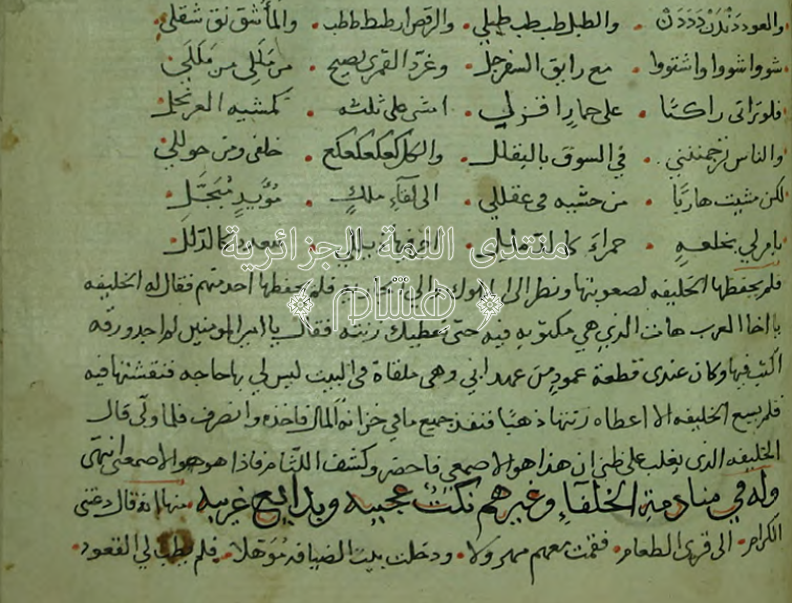 والعود دَنْدَنْ دَدَدَنْ • والطبل طب طب طبلي • والرقص ارطبط طبطب • والماشق نق شقلي
شووا شووا واشتووا • مع رابق السفرجل • وغرّد القمري يصيح • من مَلَلِي من مَلَلي
فلو تراني راكبًا • على حمارٍ اقزلي • امشي على ثلثه • كمشيه العرنجل
والناس ترجمنني • في السوق بالبقللي • والكل كعكعكعكع • خلفي ومن حوللي
لكن مشيت هاربًا • من خشيه في عقللي • الى لقاءِ ملكٍ • مؤيدٍ مُبَجَّلِ
يامر لي بخلعةٍ • حمراءَ
فلم يحفظها الخليفه لصعوبتها ونظر الى فلم يحفظها احد منهم فقال له الخليفه
يا اخا العرب هات الذي هي مكتوبه فيه حتى نعطيك زنته فقال يا امير المومنين لم اجد ورقه
اكتب فيها وكان عندي قطعة عمود من عهد ابي وهي ملقاة في البيت ليس لي بها حاجه فنقشتها فيه
فلم يسع الخليفه الا اعطاه زنتها ذهبًا فنفد جميع ما في خزانه المال فاخذه وانصرف فلما ولّى قال
الخليفه الذي يغلب على ظني ان هذا هو الاصمعي فاحضره وكشف اللثام فاذا هو هو الاصمعي انتهى
وله في منادمة الخلفآءِ وغيرهم نكت عجيبه وبدايع غريبه منها انه قال دعتني
الكرام • الى قرى الطعام • فقمت معهم مهرولا • ودخلت بيت الضيافه مؤهلا • فلم يطب لي القعود •
منتدى اللمة الجزائرية
هشام